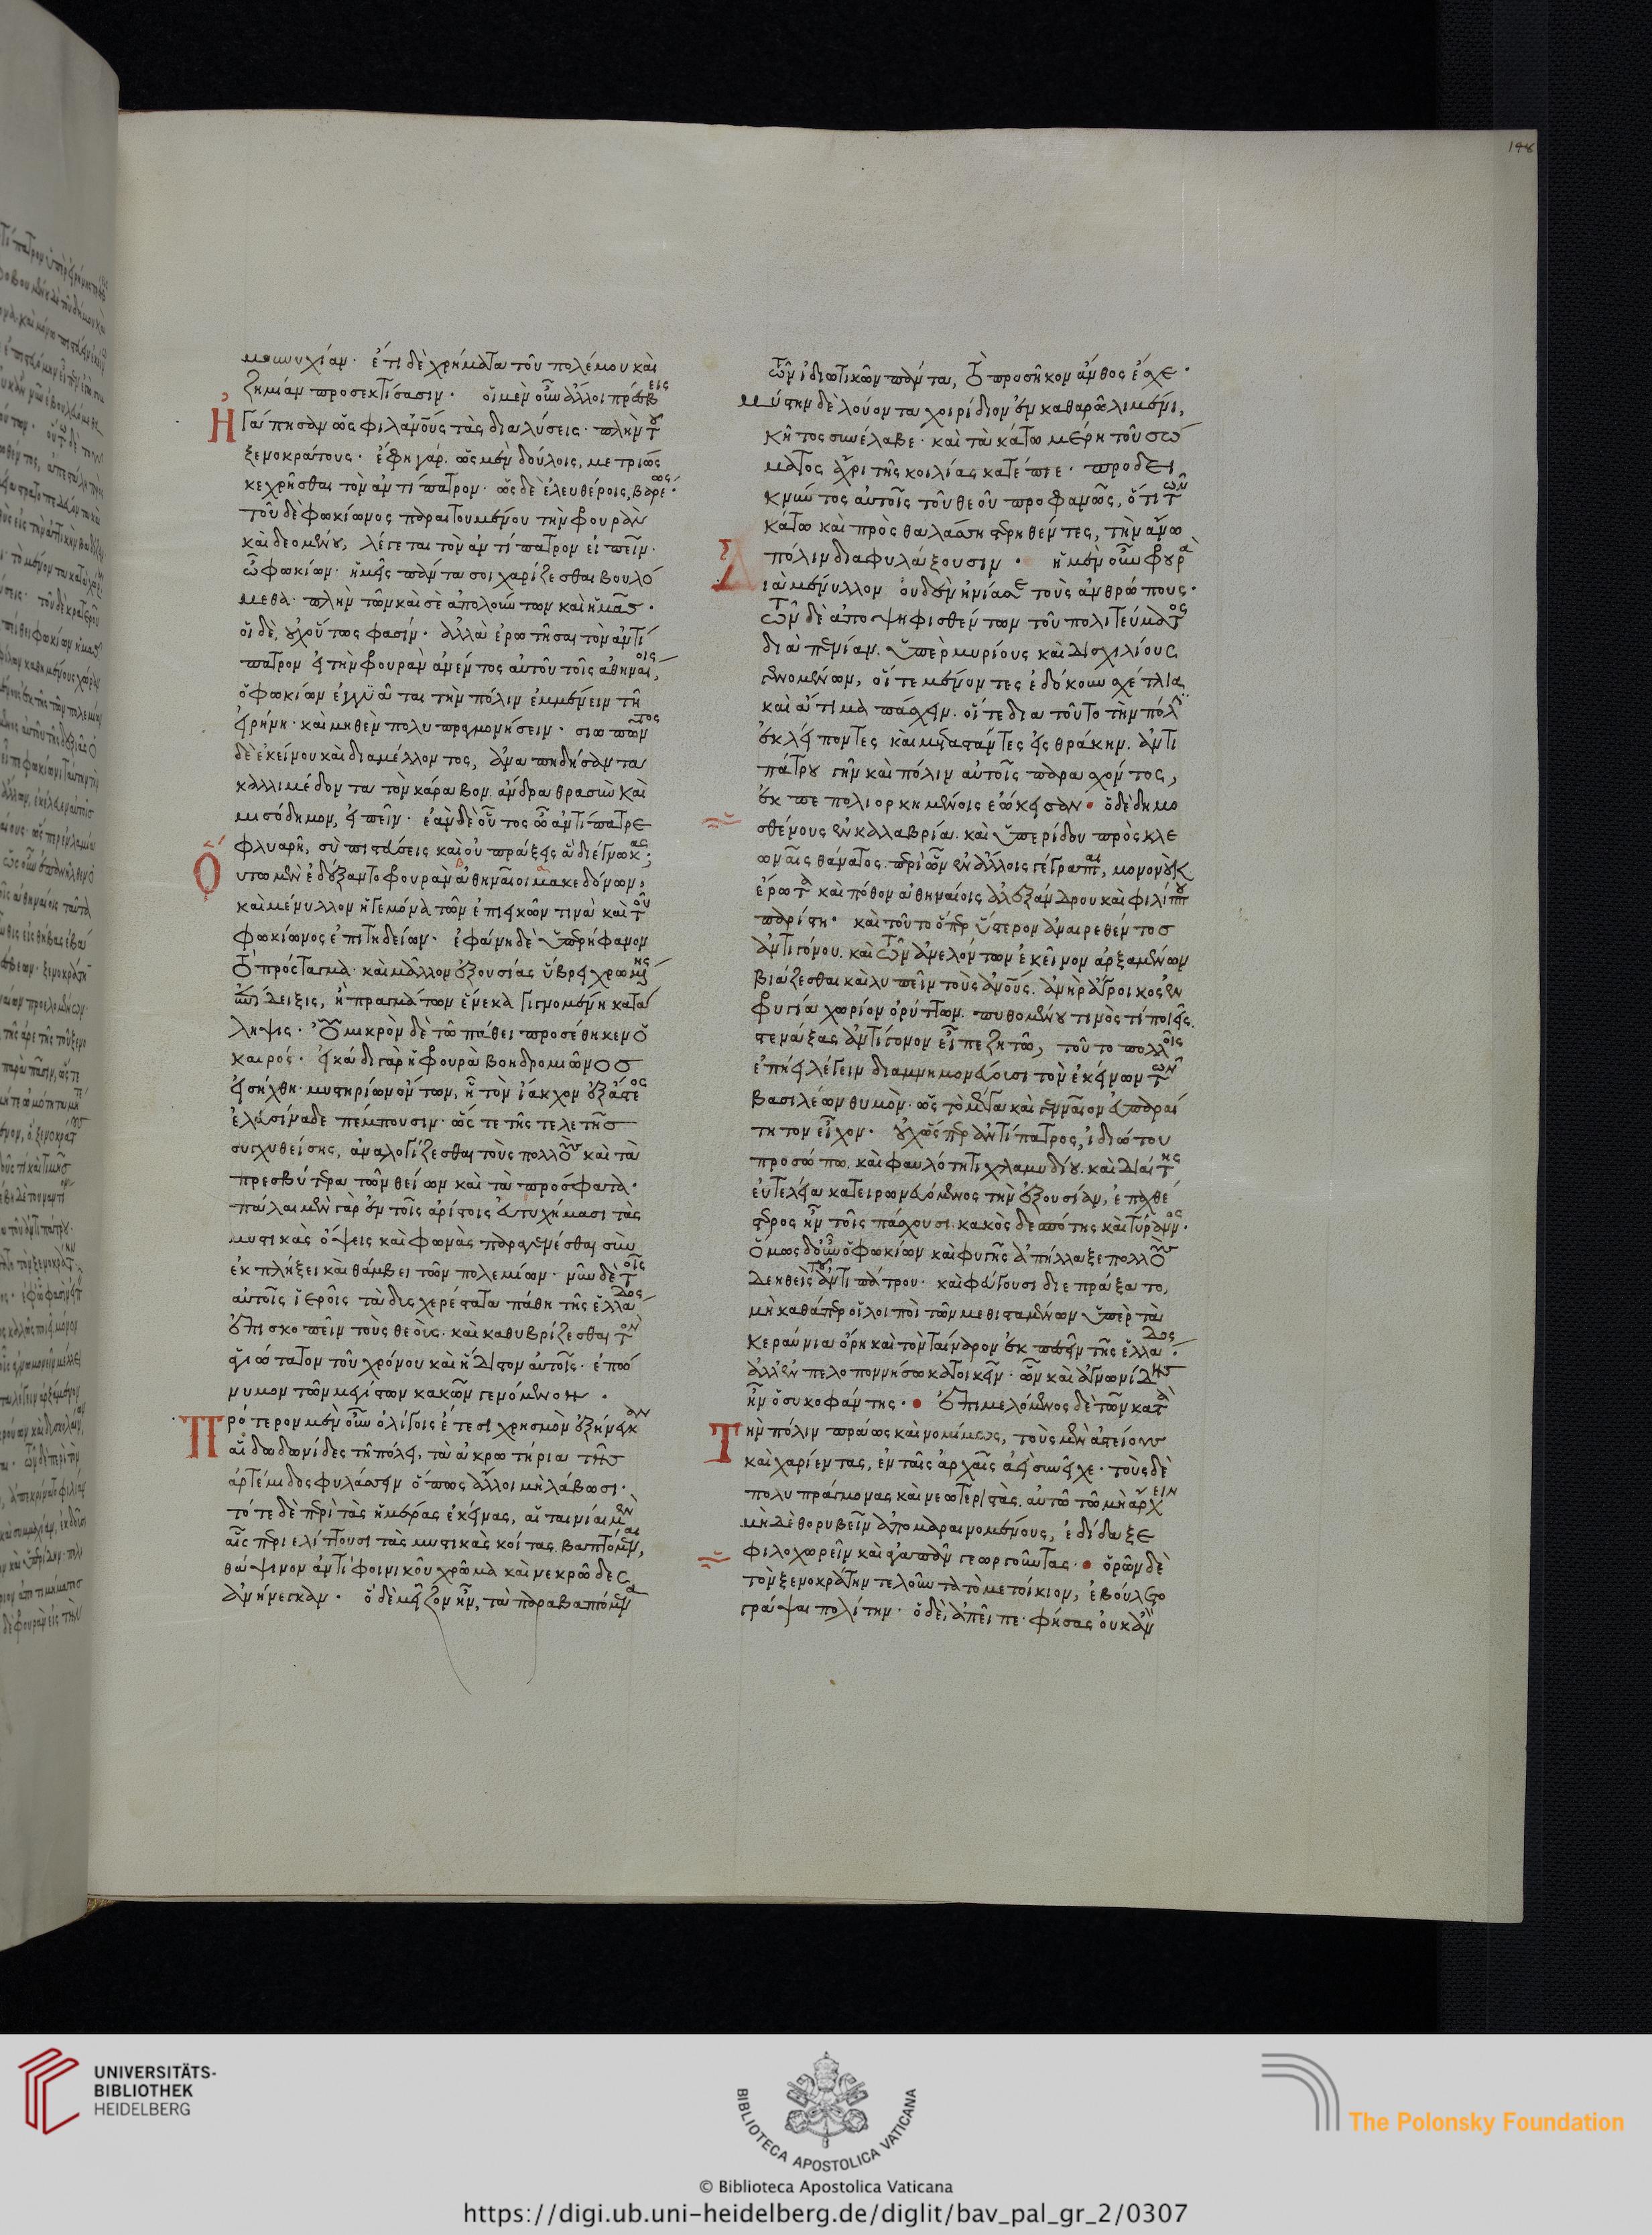 148
μουνυχίαν· ἔτι δὲ χρήματα τοῦ πολέμου καὶ
ζημίαν προσεκτίσασιν· οἱ μὲν οὖν ἄλλοι πρέσβεις
Ἠγάπησαν ὡς φιλανους τὰς διαλύσεις· πλὴν τοῦ
ξενοκράτους· ἔφη γὰρ ὡς μὲν δούλοις, μετρίως
κεχρῆσθαι τὸν ἀντίπατρον· ὡς δὲ ἐλευθέροις, βαρέως·
τοῦ δὲ φωκίωνος παραιτουμένου τὴν φουρὰν
καὶ δεομένου, λέγεται τὸν ἀντίπατρον εἰπεῖν·
ὦ φωκίων· ἡμεῖς πάντα σοι χαρίζεσθαι βουλό
μεθα· πλὴν τῶν καὶ σὲ ἀπολούντων καὶ ἡμᾶς·
οἱ δὲ, οὐχ οὕτως φασίν· ἀλλὰ ἐρωτῆσαι τὸν ἀντί
πατρον εἰ τὴν φουρὰν ἀνέντος αὐτοῦ τοῖς ἀθηναίοις,
ὁ φωκίων ἐγγυᾶται τὴν πόλιν ἐμμένειν τῇ
εἰρήνῃ· καὶ μηθὲν πολυπραγμονήσειν· σιωπῶντος
δὲ ἐκείνου καὶ διαμέλλοντος, ἀναπηδήσαντα
καλλιμέδοντα τὸν κάραβον, ἄνδρα θρασὺν καὶ
μισόδημον, εἰπεῖν· ἐὰν δὲ οὗτος ὦ ἀντίπατρε
φλυαρῇ, σὺ πιστεύσεις καὶ οὐ πράξεις ἃ διέγνωκας;
Οὕτω μὲν ἐδέξαντο φουρὰν ἀθηναῖοι μακεδόνων,
καὶ μένυλλον ἡγεμόνα τῶν ἐπιεικῶν τινὰ καὶ τοῦ
φωκίωνος ἐπιτηδείων· ἐφάνη δὲ ὑπερήφανον
τὸ πρόσταγμα· καὶ μᾶλλον ἐξουσίας ὕβρει χρωμένης
ἐπίδειξις, ἢ πραγμάτων ἕνεκα γιγνομένη κατά
ληψις· οὐ μικρὸν δὲ τῶ πάθει προσέθηκεν ὁ
καιρός· εἰκάδι γὰρ ἡ φουρὰ βοηδρομιῶνος
εἰσήχθη· μυστηρίων ὄντων, ᾗ τὸν ἴακχον ἐξ ἄστεος
ἐλευσῖνάδε πέμπουσιν· ὥστε τῆς τελετῆς
συγχυθείσης, ἀναλογίζεσθαι τοὺς πολλοὺς καὶ τὰ
πρεσβύτερα τῶν θείων καὶ τὰ πρόσφατα·
πάλαι μὲν γὰρ ἐν τοῖς ἀρίστοις εὐτυχήμασι τὰς
μυστικὰς ὄψεις καὶ φωνὰς παραγενέσθαι σὺν
ἐκπλήξει καὶ θάμβει τῶν πολεμίων· νῦν δὲ τοῖς
αὐτοῖς ἱεροῖς τὰ δυσχερέστατα πάθη τῆς ἑλλάδος
ἐπισκοπεῖν τοὺς θεοὺς· καὶ καθυβρίζεσθαι τὸν
ἁγιώτατον τοῦ χρόνου καὶ ἥδιστον αὐτοῖς· ἐπώ
νυμον τῶν μεγίστων κακῶν γενόμενον·
Πρότερον μὲν οὖν ὀλίγοις ἔτεσι χρησμὸν ἐξήνεγκαν
αἱ δωδωνίδες τῇ πόλει, τὰ ἀκρωτήρια τῆς
ἀρτέμιδος φυλάσσειν ὅπως ἄλλοι μὴ λάβωσι·
τότε δὲ περὶ τὰς ἡμέρας ἐκείνας, αἱ ταινίαι μὲν
αἷς περιελίττουσι τὰς μυστικὰς κοίτας βαπτόμεναι,
θάψινον ἀντὶ φοινικοῦ χρῶμα καὶ νεκρῶδες
ἀνήνεγκαν· ὃ δὲ μεῖζον ἦν, τὰ παραβαπτόμενα
τῶν ἰδιωτικῶν πάντα, τὸ προσῆκον ἄνθος ἔσχε·
Μύστην δὲ λούοντα χοιρίδιον ἐν καθαρῶ λιμένι,
κῆτος συνέλαβε· καὶ τὰ κάτω μέρη τοῦ σώ
ματος ἄχρι τῆς κοιλίας κατέπιε· προδει
κνύντος αὐτοῖς τοῦ θεοῦ προφανῶς, ὅτι τῶν
κάτω καὶ πρὸς θαλάσση στερηθέντες, τὴν ἄνω
πόλιν διαφυλάξουσιν· ἡ μὲν οὖν φουρὰ
Διὰ μένυλλον οὐδὲν ἠνίασε τοὺς ἀνθρώπους·
τῶν δὲ ἀποψηφισθέντων τοῦ πολιτεύματος
διὰ πενίαν, ὑπὲρ μυρίους καὶ δισχιλίους
γενομένων, οἵ τε μένοντες ἐδόκουν σχέτλια
καὶ ἄτιμα πάσχειν. οἵ τε διὰ τοῦτο τὴν πόλιν
ἐκλείποντες καὶ μεταστάντες εἰς θράκην, ἀντι
πάτρου γῆν καὶ πόλιν αὐτοῖς παρασχόντος,
ἐκπεπολιορκημένοις ἐῴκεσαν· ὁ δὲ δημο
σθένους ἐν καλαβρία. καὶ ὑπερίδου πρὸς κλε
ωναῖς θάνατος, περὶ ὧν ἐν ἄλλοις γέγραπται, μονονοὺκ
ἔρωτα καὶ πόθον ἀθηναίοις ἀλεξάνδρου καὶ φιλίππου
παρίστη· καὶ τοῦτο ὅπερ ὕστερον ἀναιρεθέντος
ἀντιγόνου. καὶ τῶν ἀνελόντων ἐκεῖνον ἀρξαμένων
βιάζεσθαι καὶ λυπεῖν τοὺς ἀνους. ἀνὴρ ἄγροικος ἐν
φυγία χωρίον ὀρύττων. πυθομένου τινὸς τί ποιεῖς.
στενάξας ἀντίγονον εἶπε ζητῶ, τοῦτο πολλοῖς
ἐπήει λέγειν διαμνημονεύουσι τὸν ἐκείνων τῶν
βασιλέων θυμὸν· ὡς τὸ μέγα καὶ γενναῖον εὐπαραί
τητον εἶχον· οὐχ ὥσπερ ἀντίπατρος, ἰδιώτου
προσώπω. καὶ φαυλότητι χλαμυδίου. καὶ διαίτης
εὐτελεία κατειρωνευόμενος τὴν ἐξουσίαν, ἐπαχθέ
στερος ἦν τοῖς πάσχουσι. κακὸς δεσπότης καὶ τύραννος·
ὅμως δ' οὖν ὁ φωκίων καὶ φυγῆς ἀπήλλαξε πολλοὺς
δεηθεὶς τοῦ ἀντιπάτρου· καὶ φεύγουσι διεπράξατο,
μὴ καθάπερ οἱ λοιποὶ τῶν μεθισταμένων ὑπὲρ τὰ
κεραύνια ὄρη καὶ τὸν ταίναρον ἐκπεσεῖν τῆς ἑλλάδος·
ἀλλ' ἐν πελοποννήσω κατοικεῖν· ὧν καὶ ἁγνωνίδης
ἦν ὁ συκοφάντης· ἐπιμελόμενος δὲ τῶν κατὰ
Τὴν πόλιν πράως καὶ νομίμως, τοὺς μὲν ἀστείους
καὶ χαρίεντας, ἐν ταῖς ἀρχαῖς ἀεὶ συνεῖχε· τοὺς δὲ
πολυπράγμονας καὶ νεωτεριστὰς, αὐτῶ τῶ μὴ ἄρχειν
μὴ δὲ θορυβεῖν ἀπομαραινομένους, ἐδίδαξε
φιλοχωρεῖν καὶ ἀγαπᾶν γεωργοῦντας· ὁρῶν δὲ
τὸν ξενοκράτην τελοῦντα τὸ μετοίκιον, ἐβούλετο
γράψαι πολίτην· ὁ δὲ, ἀπεῖπε· φήσας οὐκ ἂν
UNIVERSITÄTS-
BIBLIOTHEK
HEIDELBERG
BIBLIOTECA APOSTOLICA VATICANA
The Polonsky Foundation
© Biblioteca Apostolica Vaticana
https://digi.ub.uni-heidelberg.de/diglit/bav_pal_gr_2/0307